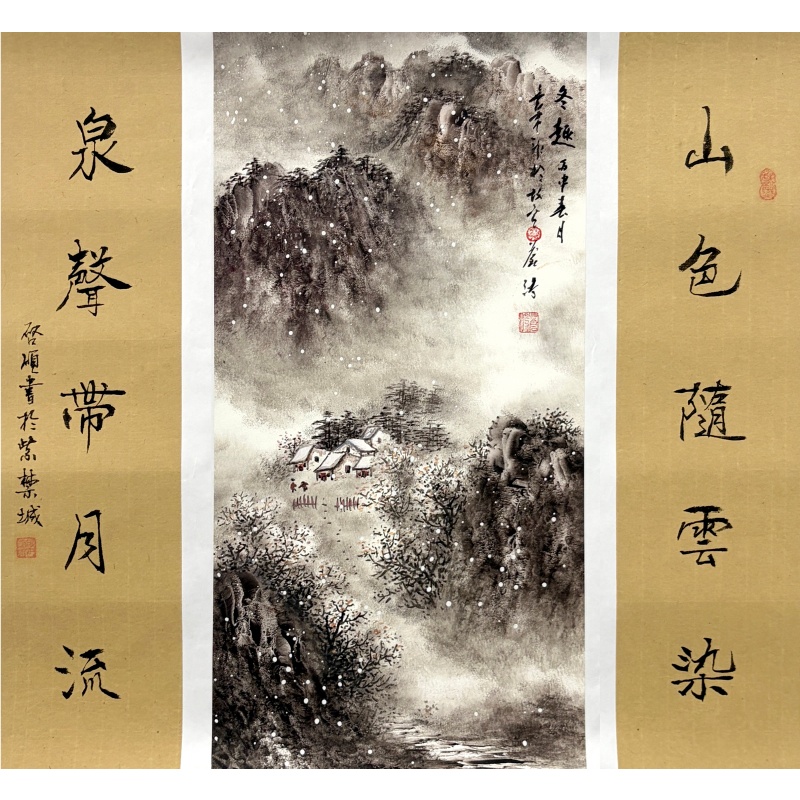 山色隨雲染
冬趣 丙申春月
於故宮
泉聲帶月流
啓碩書於紫禁城